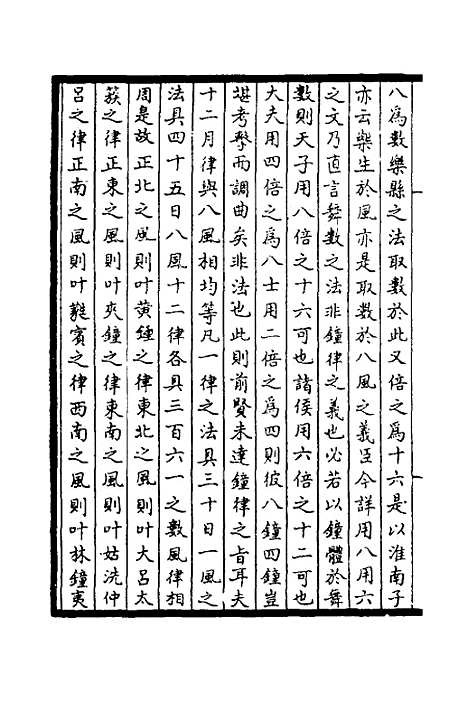 八爲數樂縣之法取數於此又倍之爲十六是以淮南子
亦云樂生於風亦是取數於八風之義臣今詳用八用六
之文乃直言舞數之法非鐘律之義也必若以鐘體於舞
數則天子用八倍之十六可也諸侯用六倍之十二可也
大夫用四倍之爲八士用二倍之爲四則彼八鐘四鐘豈
堪考擊而調曲矣非法也此則前賢未達鐘律之旨耳夫
十二月律與八風相均等凡一律之法具三十日一風之
法具四十五日八風十二律各具三百六一之數風律相
周是故正北之風則叶黄鍾之律東北之風則叶大呂太
蔟之律正東之風則叶夾鐘之律東南之風則叶姑洗仲
呂之律正南之風則叶蕤賓之律西南之風則叶林鐘夷